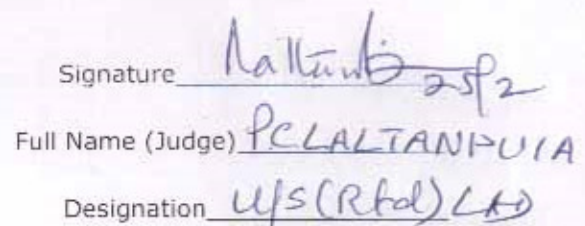 Signature 25/2
Full Name (Judge) PCLALTANPUIA
Designation U/S (Rtd) LAD